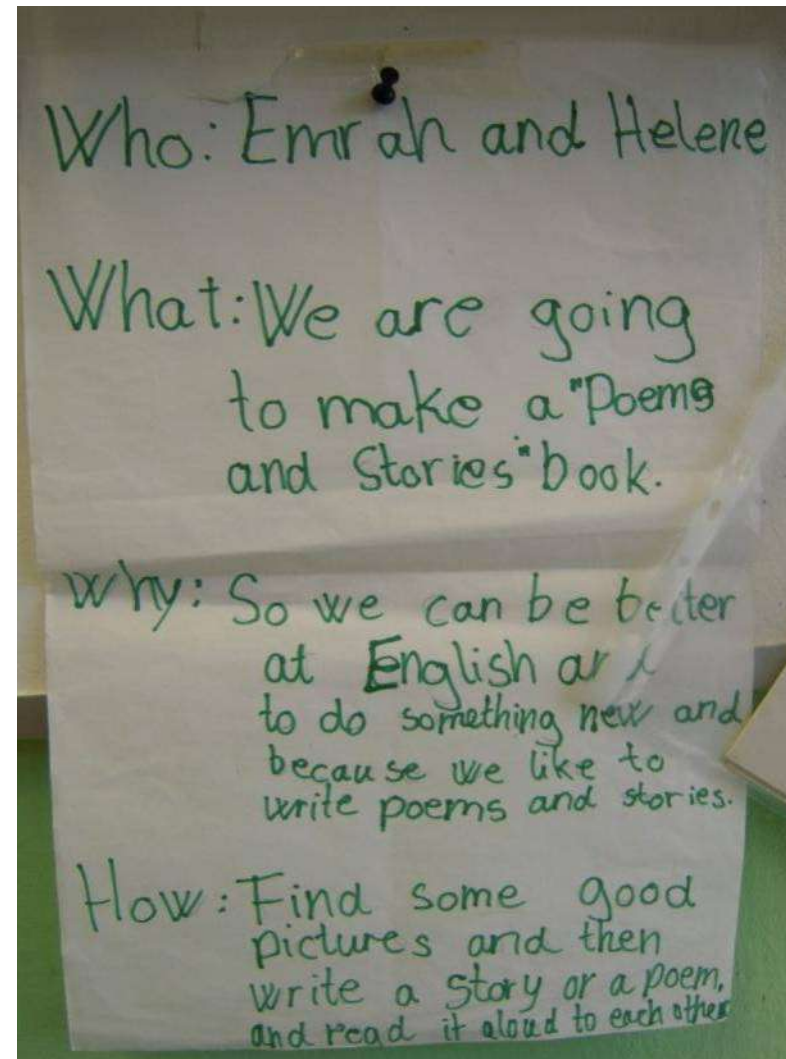 Who: Emrah and Helene
What: We are going
to make a "Poems
and Stories" book.
Why: So we can be better
at English and
to do something new and
because we like to
write poems and stories.
How: Find some good
pictures and then
write a story or a poem,
and read it aloud to each other